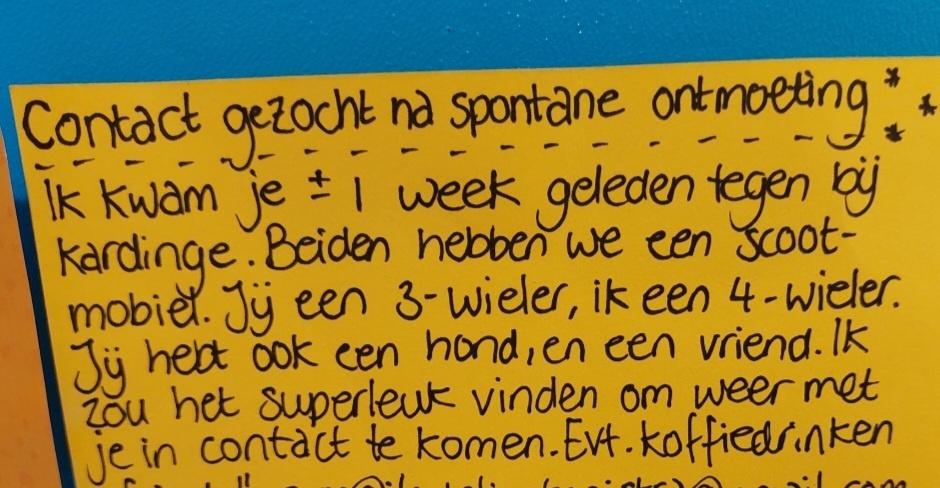 Contact gezocht na spontane ontmoeting ***
Ik kwam je ± 1 week geleden tegen bij
Kardinge. Beiden hebben we een scoot-
mobiel. Jij een 3-wieler, ik een 4-wieler.
Jij hebt ook een hond, en een vriend. Ik
zou het superleuk vinden om weer met
je in contact te komen. Evt. koffiedrinken